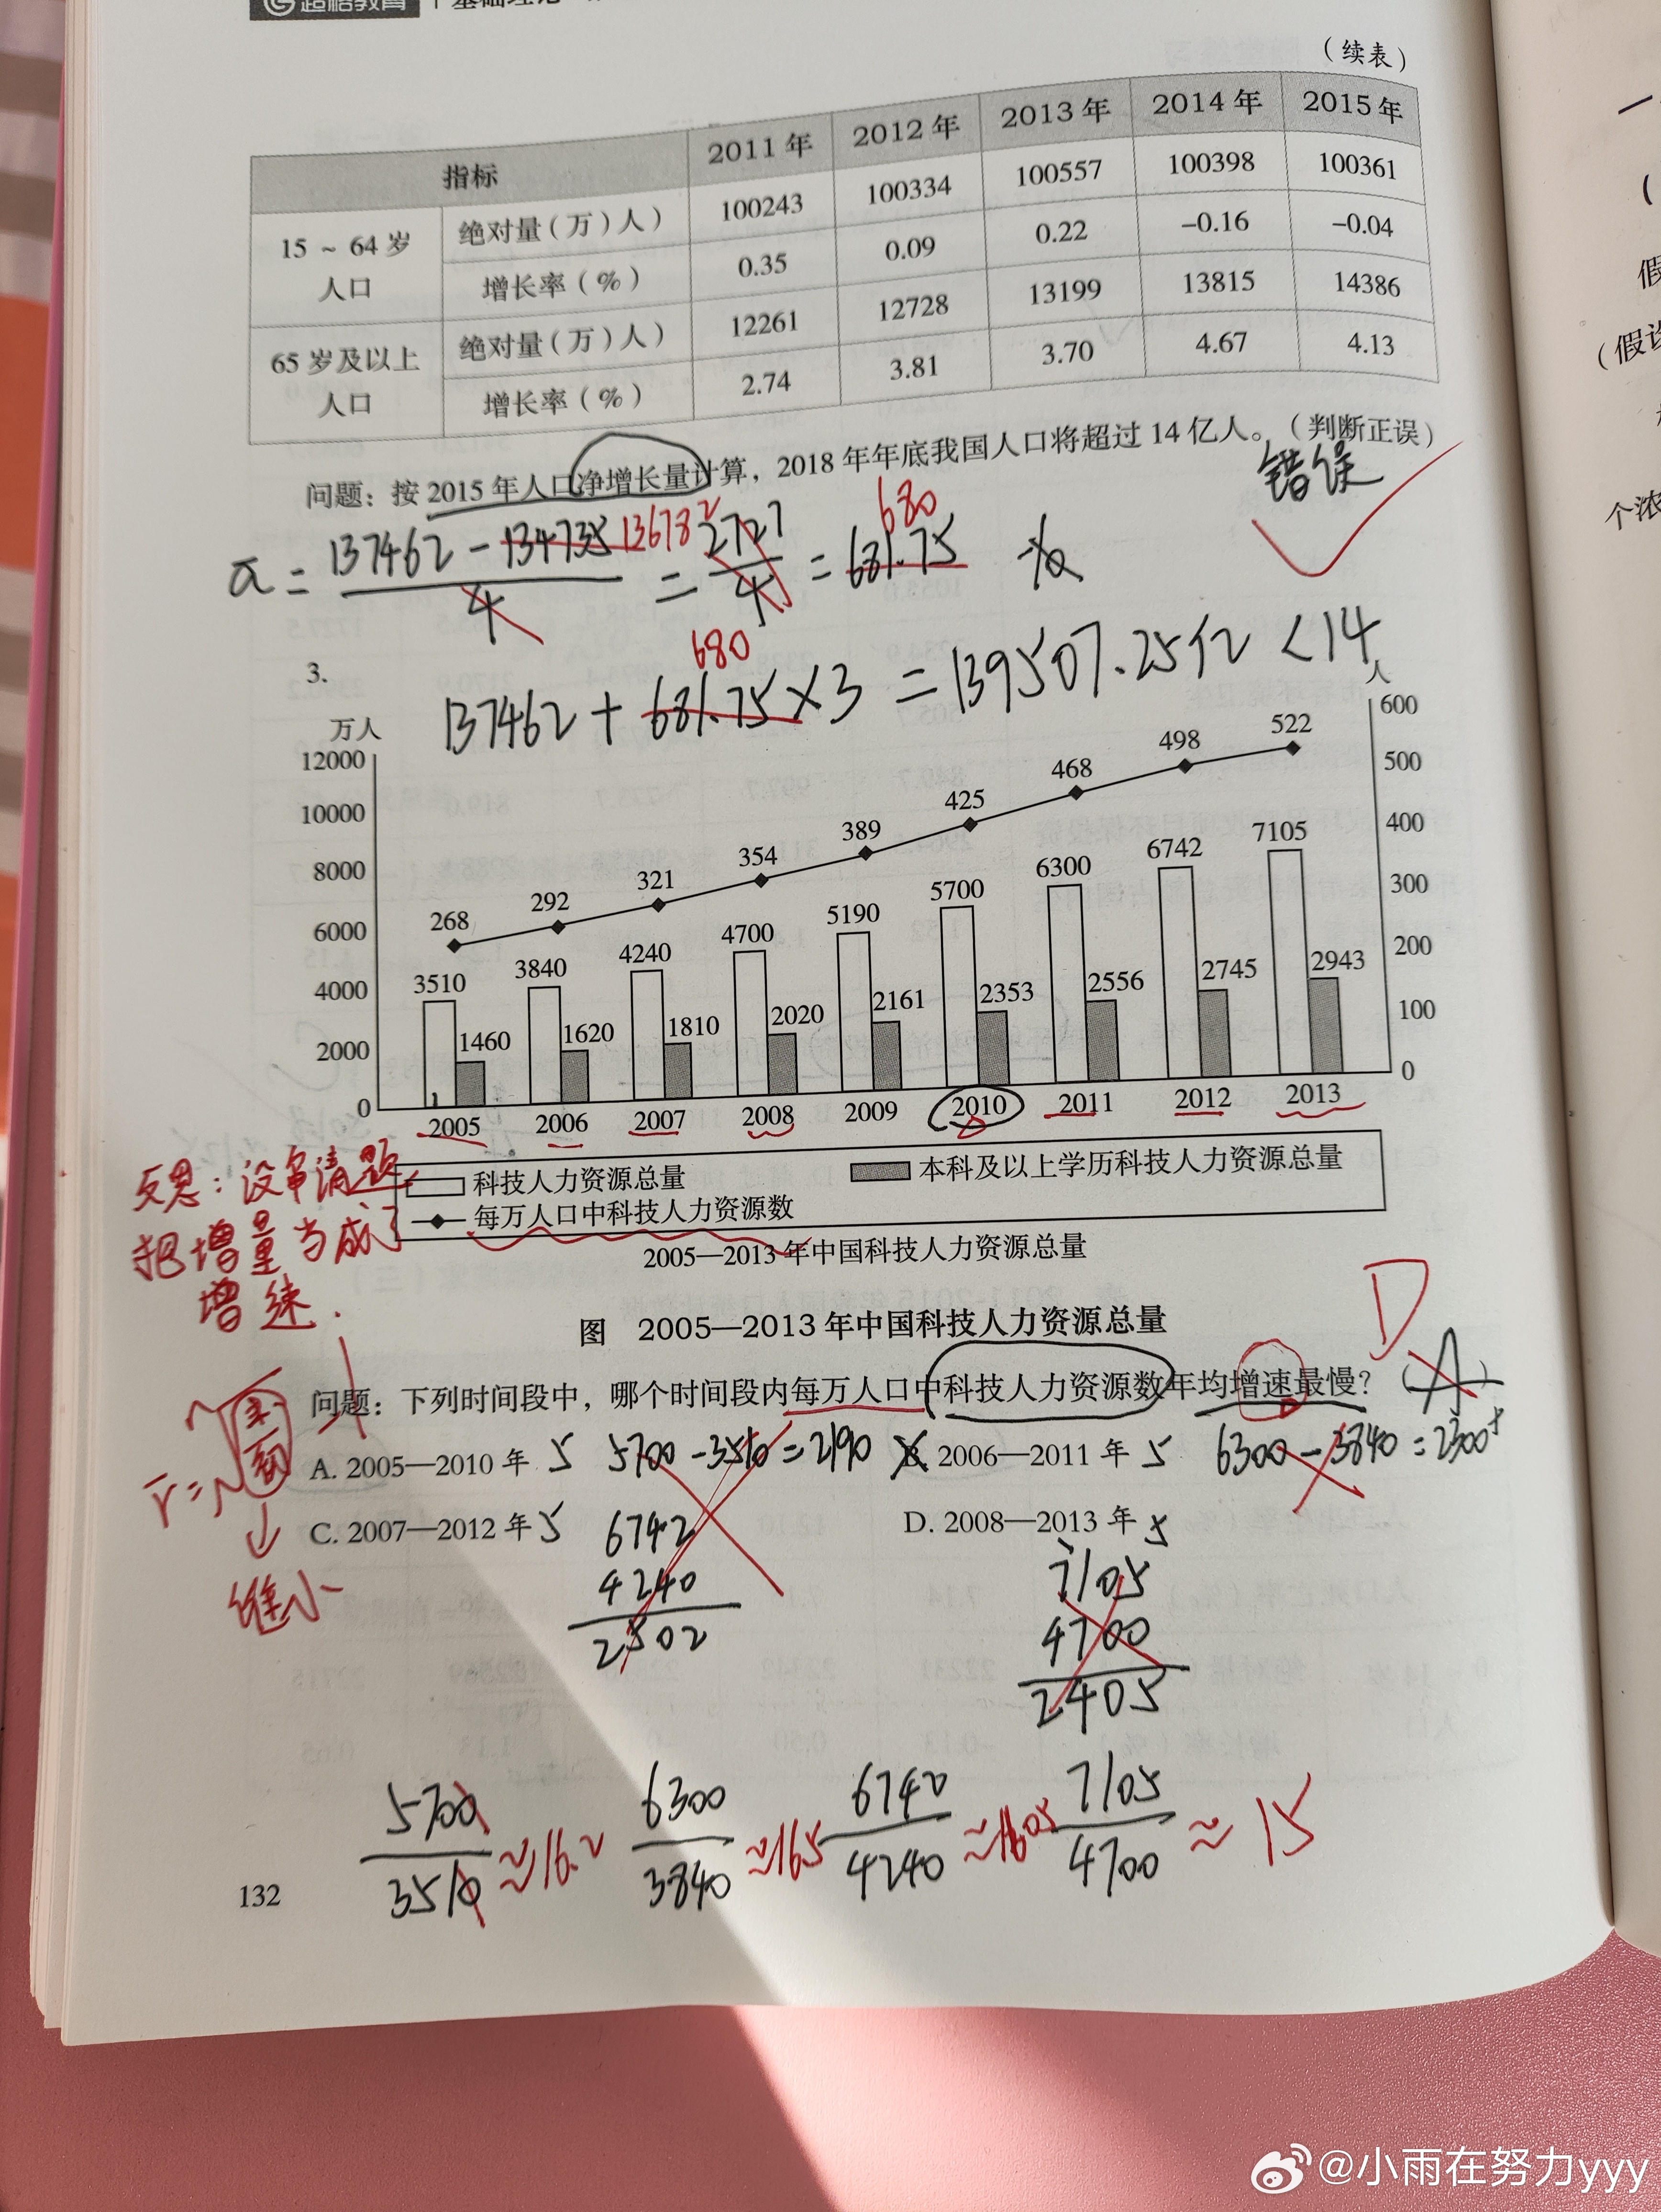 超格教育
基础理论
（续表）
指标 2011年 2012年 2013年 2014年 2015年
15 ~ 64岁人口 绝对量（万）人） 100243 100334 100557 100398 100361
增长率（%） 0.35 0.09 0.22 -0.16 -0.04
65岁及以上人口 绝对量（万）人） 12261 12728 13199 13815 14386
增长率（%） 2.74 3.81 3.70 4.67 4.13
问题：按2015年人口净增长量计算，2018年年底我国人口将超过14亿人。（判断正误）
错误
680
= 137462 - 134735 136782 / 4 = 2727 / 4 = 681.75
680
3.
137462 + 681.75 × 3 = 139507.25亿 < 14
万人
人
12000
10000
8000
6000
4000
2000
0
600
500
400
300
200
100
0
268 292 321 354 389 425 468 498 522
3510 3840 4240 4700 5190 5700 6300 6742 7105
1460 1620 1810 2020 2161 2353 2556 2745 2943
2005 2006 2007 2008 2009 2010 2011 2012 2013
科技人力资源总量 本科及以上学历科技人力资源总量
每万人口中科技人力资源数
2005—2013年中国科技人力资源总量
反思：没审清题
把增量当成了
增速.
图 2005—2013年中国科技人力资源总量
D
问题：下列时间段中，哪个时间段内每万人口中科技人力资源数年均增速最慢？（A）
A. 2005—2010年 5 5700 - 3510 = 2190
B. 2006—2011年 5 6300 - 3840 = 2300+
C. 2007—2012年 5
6742
4240
2502
D. 2008—2013年 5
7105
4700
2405
缩小
5700 / 3510 ≈ 16.2
6300 / 3840 ≈ 165
6742 / 4240
7105 / 4700 ≈ 15
132
假
（假设
个浓
@小雨在努力yyy